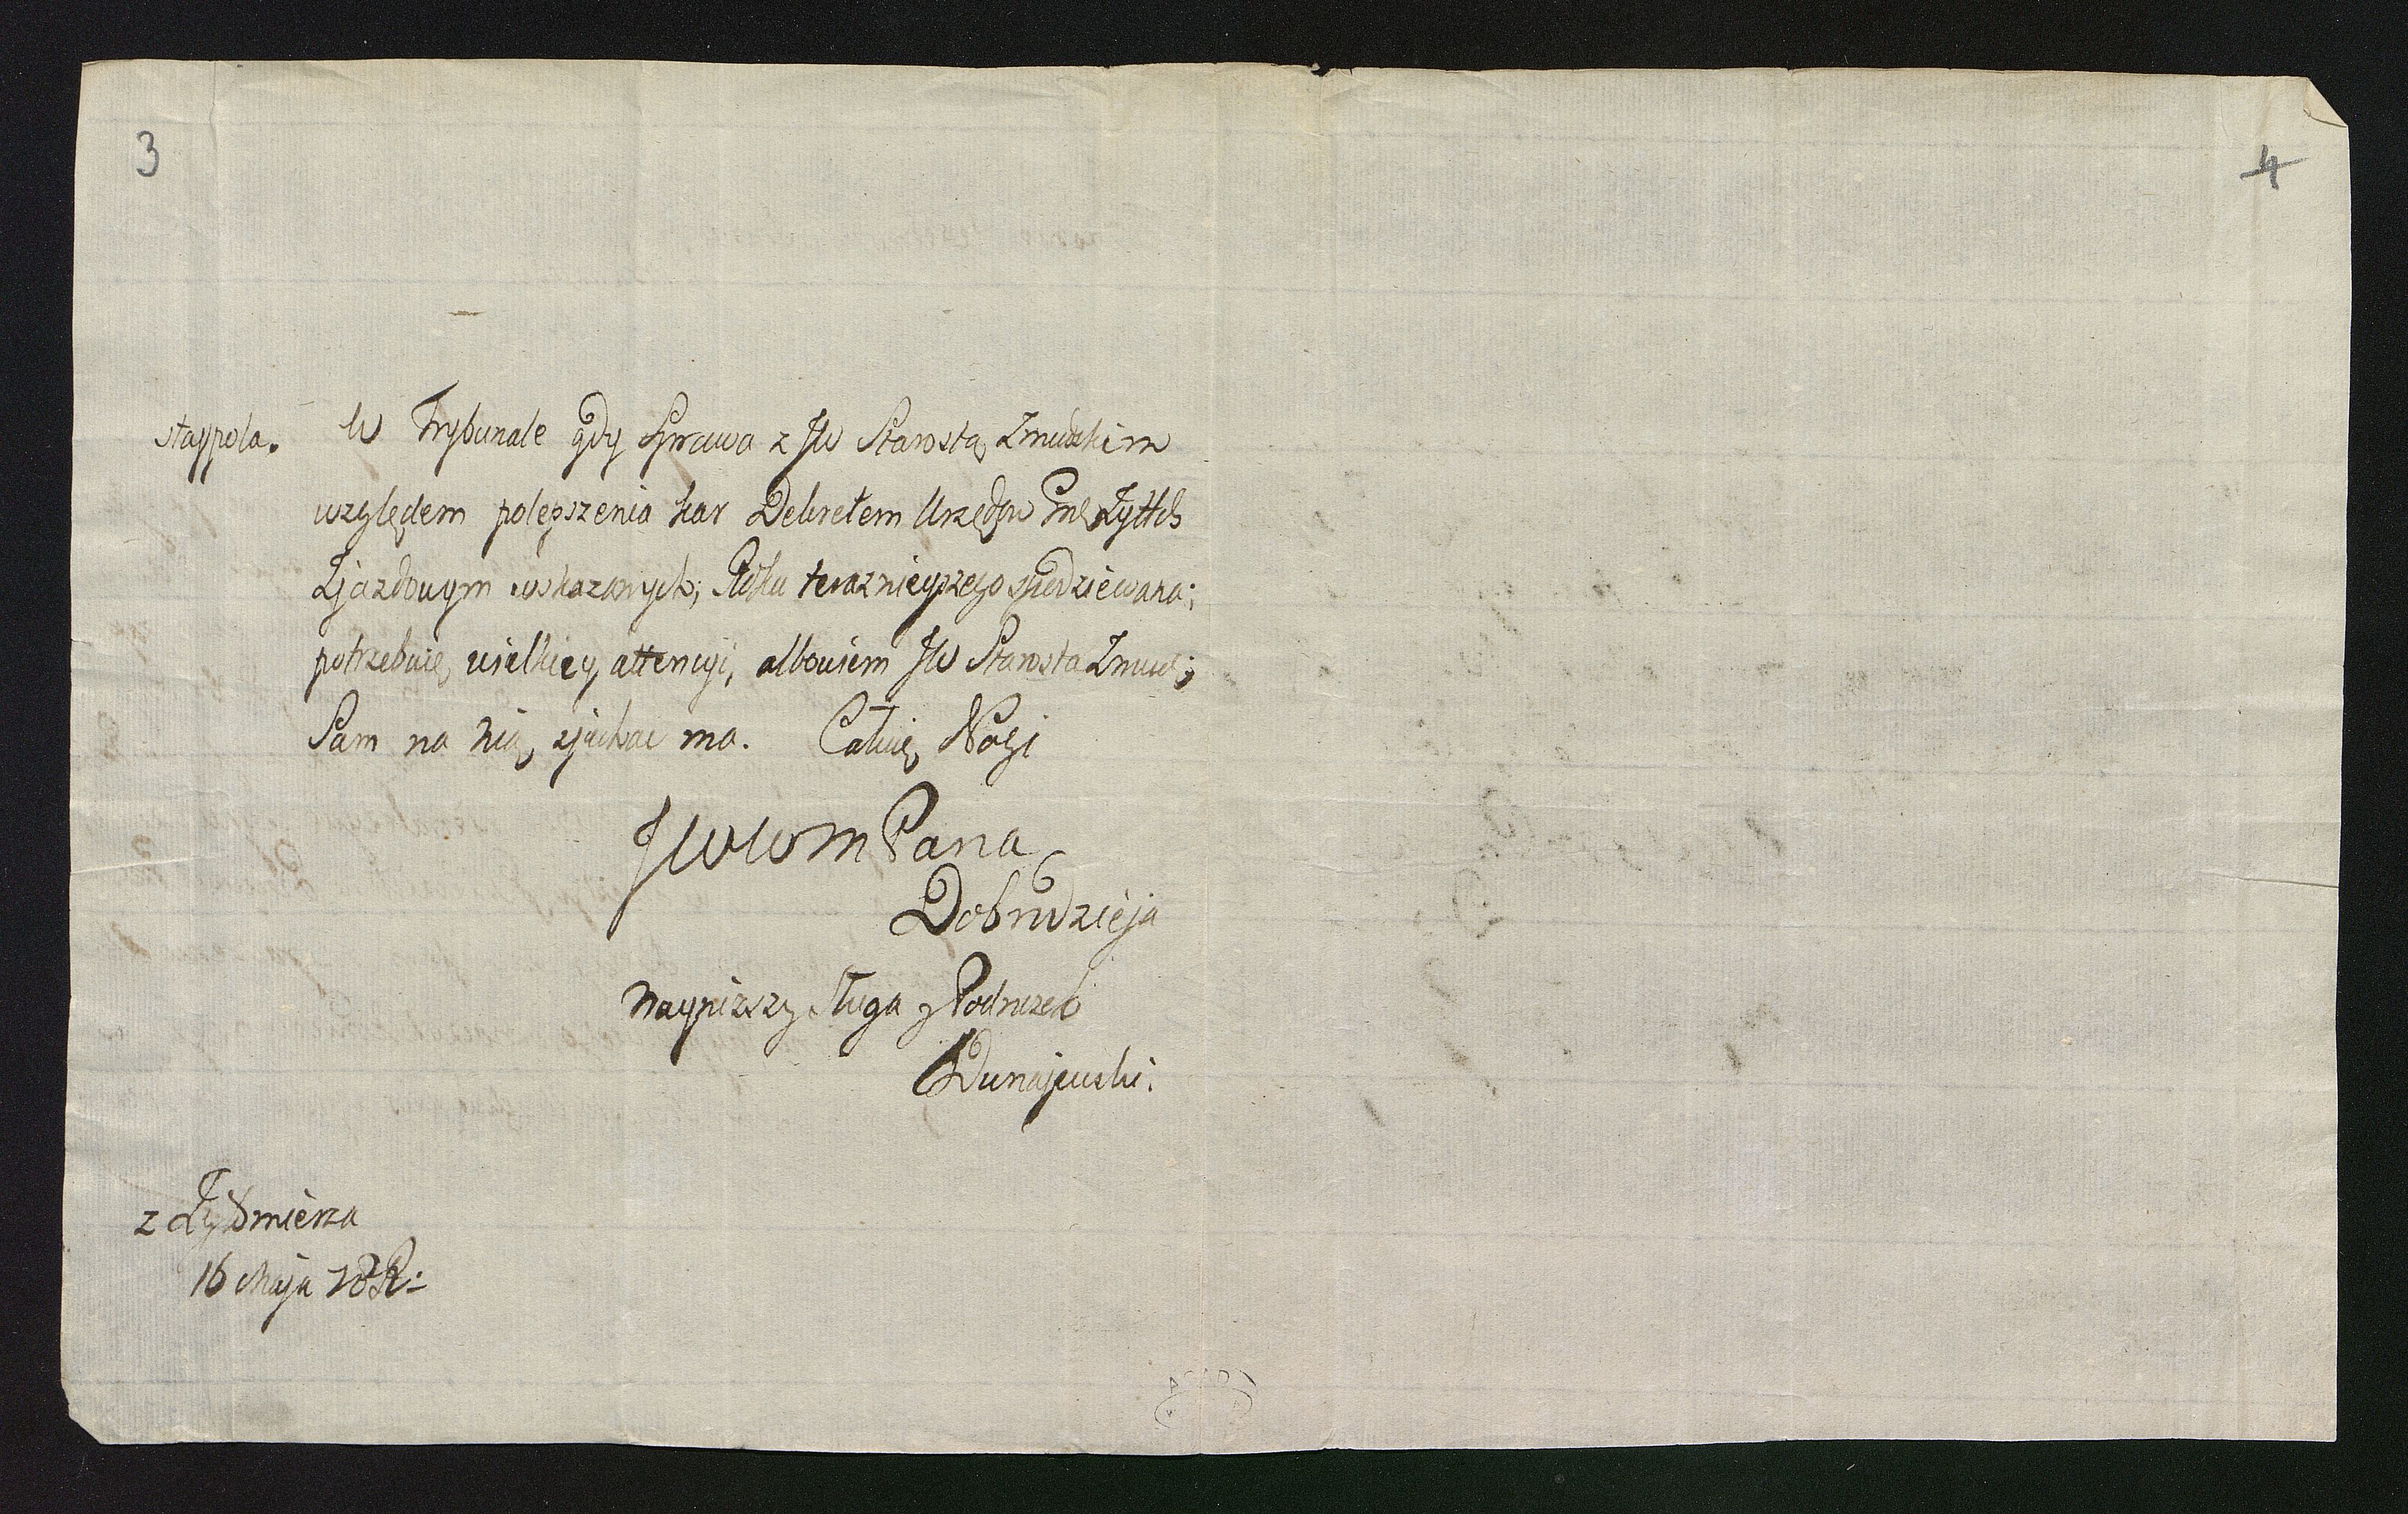 3
4
staypola. W Trybunale gdy Sprawa z JW Starostą Zmudzkim
względem polepszenia kar Dekretem Urzędow
Zjazdowym wskazanych, Roku teraznieyszego spodziewana;
potrzebuię wielkiey attencyi, albowiem JW Starosta Zmudz;
Sam na nią zjachac ma. Całuię Nogi
JWWM Pana
Dobrodzieja
Nayniższy Sługa y Podnożek
Dunajewski.
16 Maja